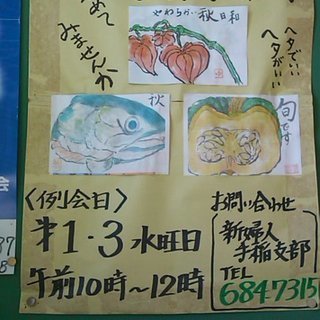 めて
みませんか
やわらかい秋日和
ヘタでいい
ヘタがいい
秋
旬です
〈例会日〉
第1・3水曜日
午前10時～12時
お問い合わせ
新婦人
手稲支部
TEL
6847315
会
37
B